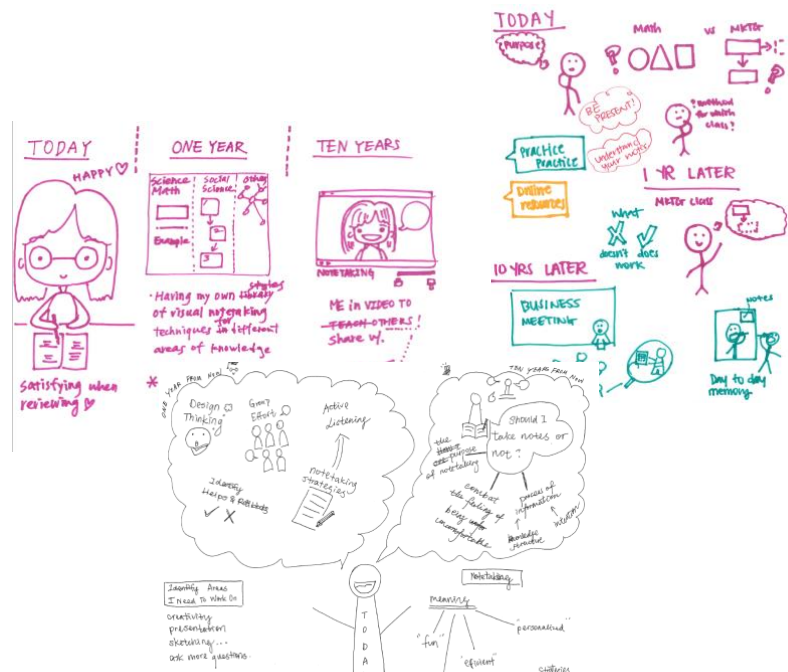 TODAY
HAPPY
Satisfying when
reviewing
ONE YEAR
Science
Math
Example
Social
Science
3
other
styles
• Having my own library
of visual notetaking
for
techniques in different
areas of knowledge
TEN YEARS
NOTETAKING
ME in VIDEO TO
TEACH OTHERS!
share w/.
TODAY
Purpose
?
Math
vs
MKTGT
?
BE
PRESENT!
? method
for which
class?
Practice
Practice
Understand
your notes
Online
resources
1 YR LATER
MKTGT class
What
doesn't does
work
10 YRS LATER
BUSINESS
MEETING
notes
Day to day
memory
*
ONE YEAR FROM NOW
Design
Thinking
Group
Effort
Active
Listening
Identify
Helps &
notetaking
strategies
TEN YEARS FROM NOW
Should I
take notes or
not?
the
purpose
of notetaking
combat
the feeling of
being
uncomfortable
process of
information
knowledge
intention
TODA
Identify Areas
I Need To Work On
creativity
presentation
sketching...
ask more questions.
Notetaking
meaning
"fun"
"eficient"
"personalised"